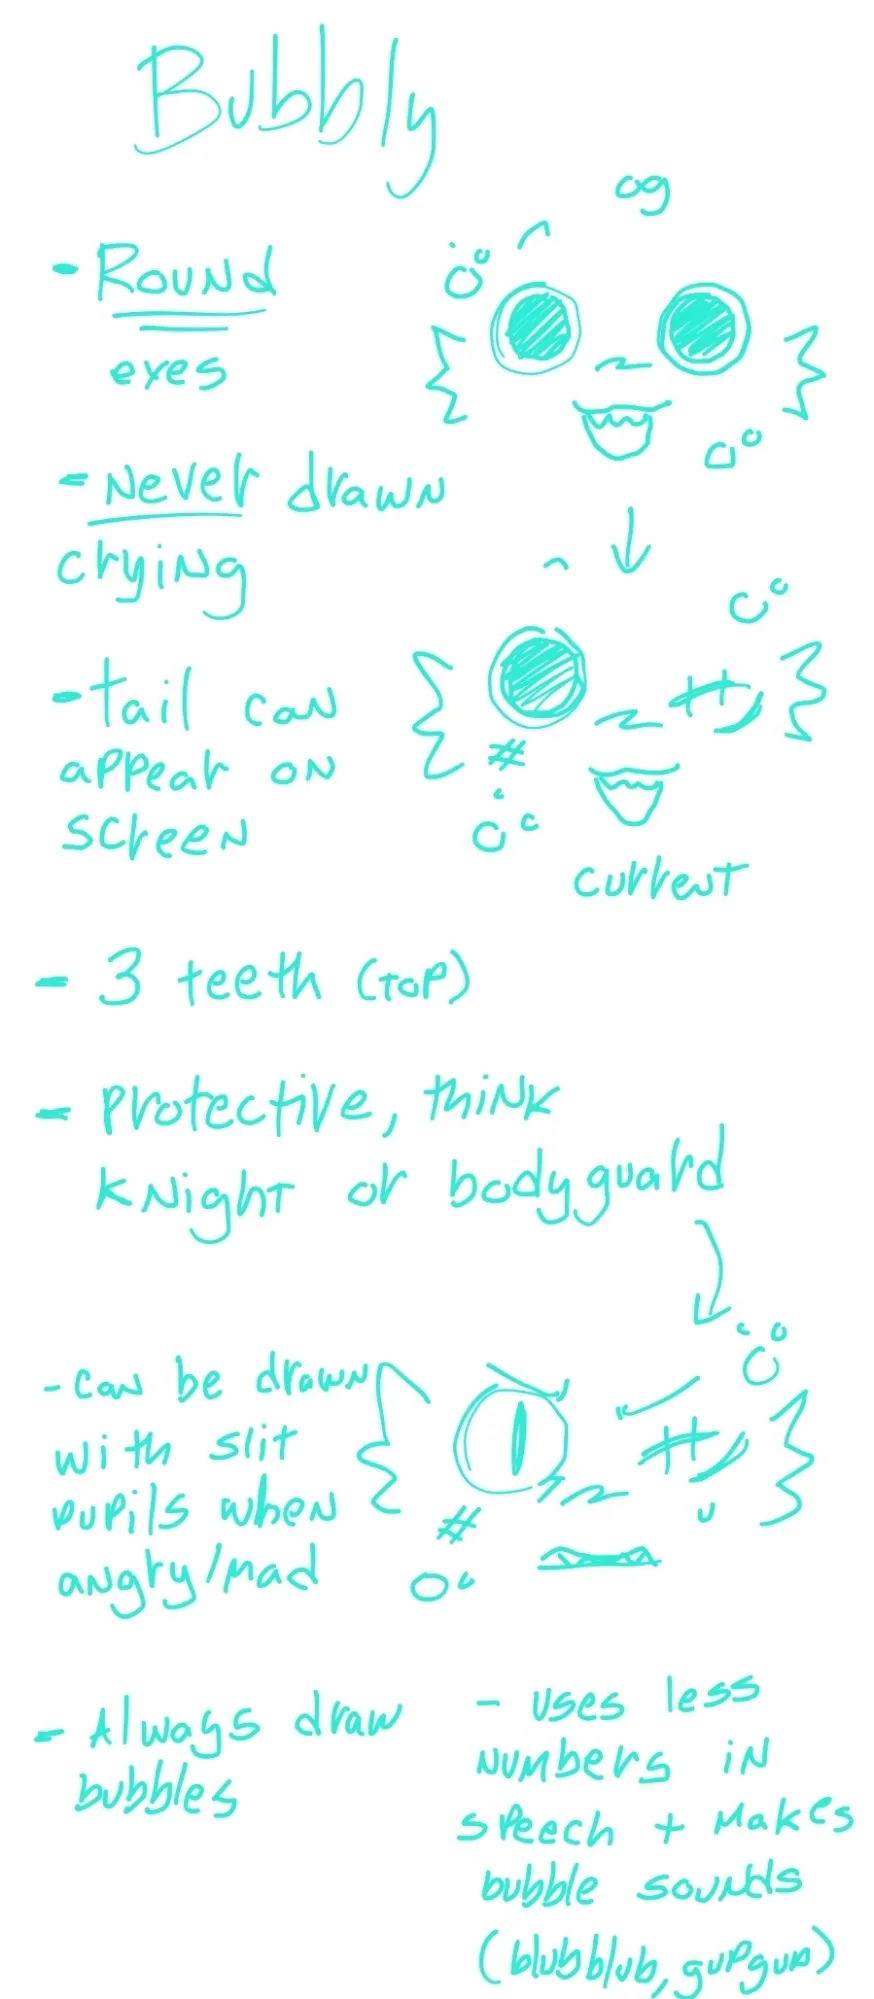 Bubbly
og
- Round
eyes
- Never drawn
crying
- tail can
appear on
screen
current
- 3 teeth (TOP)
- Protective, think
knight or bodyguard
- can be drawn
with slit
pupils when
angry/mad
- Always draw
bubbles
- uses less
numbers in
speech + makes
bubble sounds
(blubblub, gupgup)